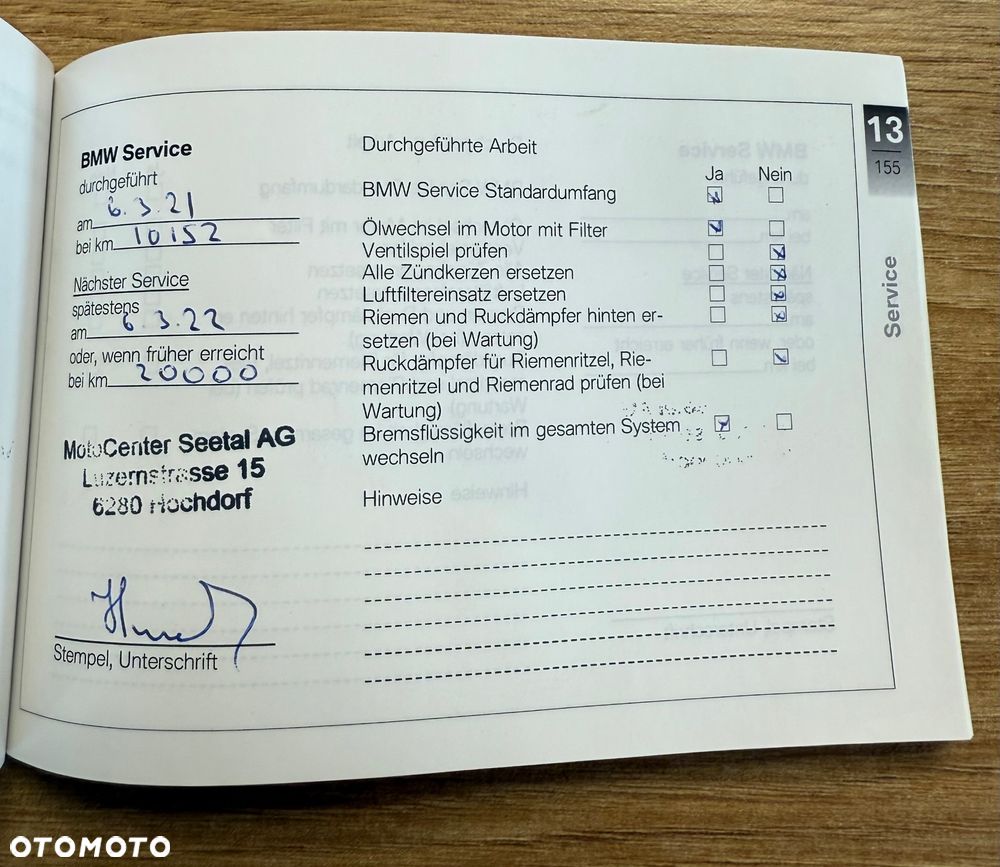 BMW Service
durchgeführt
am 6.3.21
bei km 10152
Nächster Service
spätestens
am 6.3.22
oder, wenn früher erreicht
bei km 20000
MotoCenter Seetal AG
Luzernstrasse 15
6280 Hochdorf
Stempel, Unterschrift
Durchgeführte Arbeit
Ja Nein
BMW Service Standardumfang
Ölwechsel im Motor mit Filter
Ventilspiel prüfen
Alle Zündkerzen ersetzen
Luftfiltereinsatz ersetzen
Riemen und Ruckdämpfer hinten er-
setzen (bei Wartung)
Ruckdämpfer für Riemenritzel, Rie-
menritzel und Riemenrad prüfen (bei
Wartung)
Bremsflüssigkeit im gesamten System
wechseln
Hinweise
13
155
Service
OTOMOTO